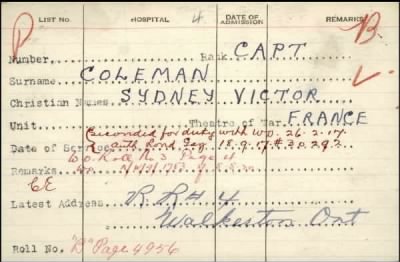 LIST No. HOSPITAL 4 DATE OF ADMISSION REMARKS
P B
Number Rank CAPT
Surname COLEMAN
Christian Names SYDNEY VICTOR
Unit Theatre of War FRANCE
Seconded for duty with W.O. 26.2.17.
Date of Service Auth. Lond. Gaz. 18.9.17 # 30292
W.O. Roll No 3 Page 11
Remarks
CE
Latest Address R R # 4
Walkerton Ont
Roll No. "B" Page 4956